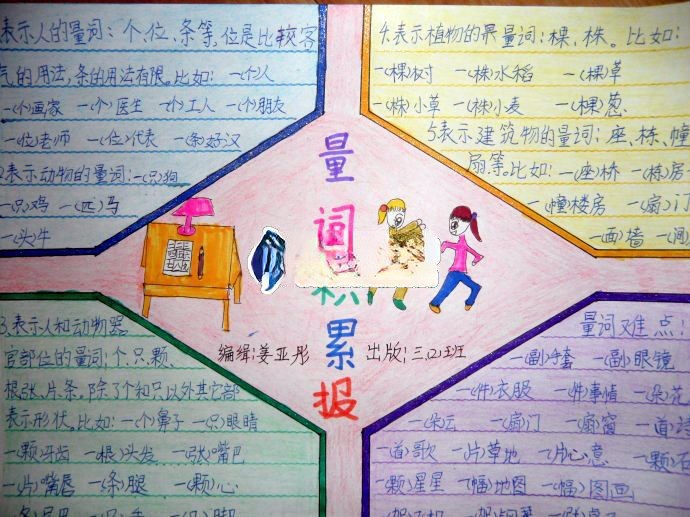 表示人的量词:个、位、条等,位是比较客
气的用法,条的用法有限。比如: 一(个)人
一(个)画家 一(个)医生 一(个)工人 一(个)朋友
一(位)老师 一(位)代表 一(条)好汉
2.表示动物的量词:一(只)狗
一(只)鸡 一(匹)马
一(头)牛
4.表示植物的量词:棵、株。比如:
一(棵)树 一(株)水稻 一(棵)草
一(株)小草 一(株)小麦 一(棵)葱
5表示建筑物的量词:座、栋、幢
扇等。比如: 一(座)桥 一(栋)房
一(幢)楼房 一(扇)门
一(面)墙 一(间)
量
词
积
累
报
编缉:姜亚彤 出版:三、(2)班
3.表示人和动物器
官部位的量词:个、只、颗、
根、张、片、条。除了个和只以外其它部
表示形状。比如: 一(个)鼻子 一(只)眼睛
一(颗)牙齿 一(根)头发 一(张)嘴巴
一(片)嘴唇 一(条)腿 一(颗)心
量词难点:
一(副)手套 一(副)眼镜
一(件)衣服 一(件)事情 一(朵)花
一(朵)云 一(扇)门 一(扇)窗 一(道)
一(首)歌 一(片)草地 一(片)心意 一(颗)石
一(颗)星星 一(幅)地图 一(幅)图画